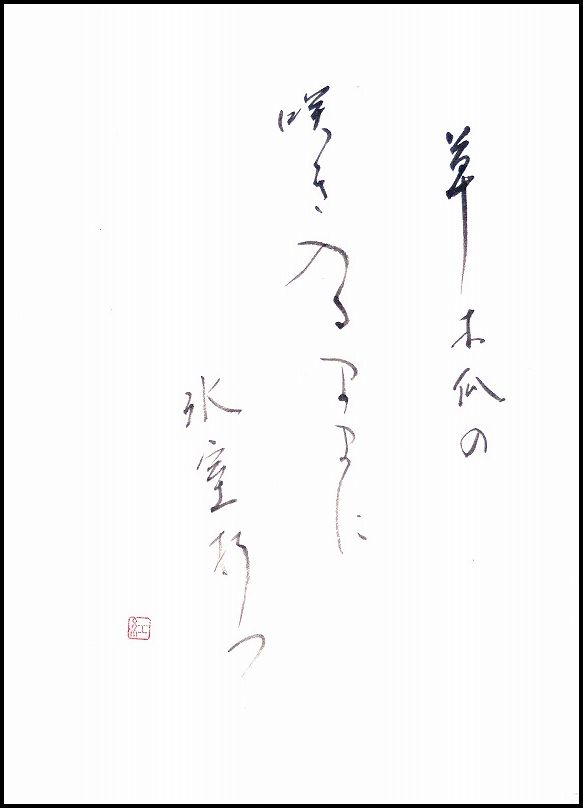 草木瓜の
咲き入るままに
氷室朽つ
紅